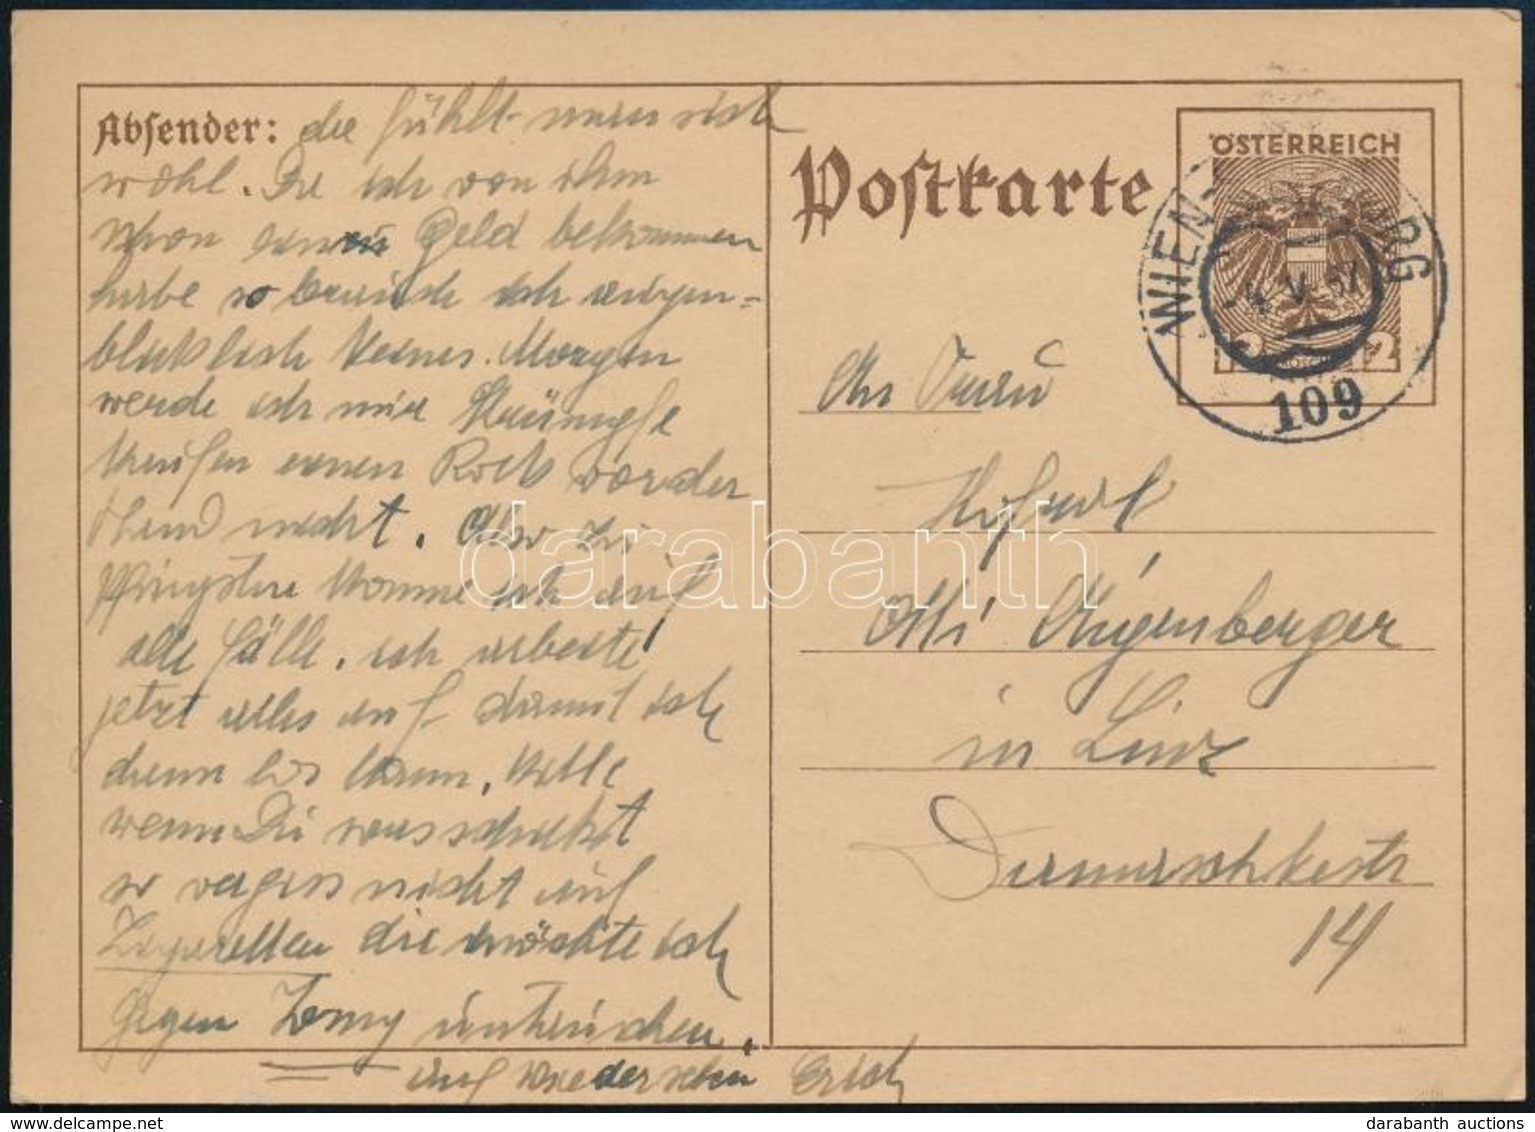 Absender: die fühlt man sich
wohl. Da ich von ihm
schon Geld bekommen
habe so brauch ich augen=
blicklich keines. Morgen
werde ich mir Strümpfe
kaufen einen Rock vorder
hand nicht. Also zu
Pfingsten komme ich auf
alle Fälle. ich arbeite
jetzt alles auf damit ich
dann los kann. Bitte
wenn Du was schickst
so vergiss nicht auf
Zigaretten die möchte ich
gegen umtauschen.
auf wiedersehen Erich
Postkarte
ÖSTERREICH
WIEN
109
An Frau
Hofrat
Angenberger
in Linz
14
darabanth
darabanth auctions